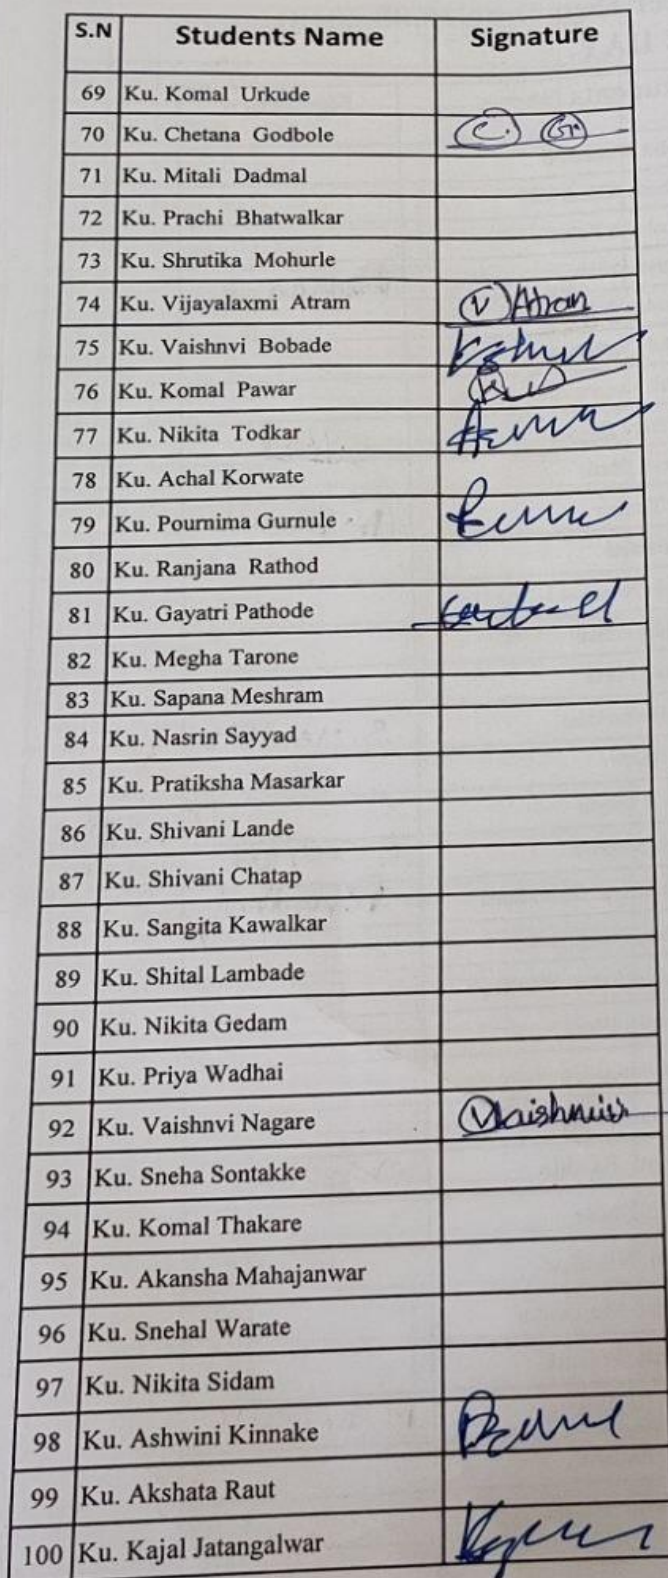 S.N Students Name Signature
69 Ku. Komal Urkude
70 Ku. Chetana Godbole C. G.
71 Ku. Mitali Dadmal
72 Ku. Prachi Bhatwalkar
73 Ku. Shrutika Mohurle
74 Ku. Vijayalaxmi Atram V Atram
75 Ku. Vaishnvi Bobade
76 Ku. Komal Pawar
77 Ku. Nikita Todkar
78 Ku. Achal Korwate
79 Ku. Pournima Gurnule
80 Ku. Ranjana Rathod
81 Ku. Gayatri Pathode
82 Ku. Megha Tarone
83 Ku. Sapana Meshram
84 Ku. Nasrin Sayyad
85 Ku. Pratiksha Masarkar
86 Ku. Shivani Lande
87 Ku. Shivani Chatap
88 Ku. Sangita Kawalkar
89 Ku. Shital Lambade
90 Ku. Nikita Gedam
91 Ku. Priya Wadhai
92 Ku. Vaishnvi Nagare
93 Ku. Sneha Sontakke
94 Ku. Komal Thakare
95 Ku. Akansha Mahajanwar
96 Ku. Snehal Warate
97 Ku. Nikita Sidam
98 Ku. Ashwini Kinnake
99 Ku. Akshata Raut
100 Ku. Kajal Jatangalwar